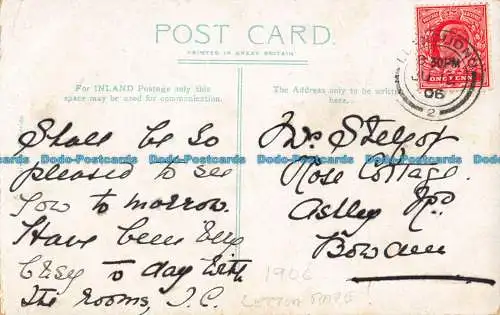 POST CARD.
PRINTED IN GREAT BRITAIN.
For INLAND Postage only this
space may be used for communication.
The Address only to be written
here.
POSTAGE
ONE PENNY
30PM
06
2
Shall be so
pleased to see
you to morrow.
Have been very
busy to day with
the rooms, J.C.
Mrs
Rose Cottage
Ashley Rd.
Bowdon
1906
Dodo-Postcards Dodo-Postcards Dodo-Postcards Dodo-Postcards
Dodo-Postcards Dodo-Postcards Dodo-Postcards Dodo-Postcards